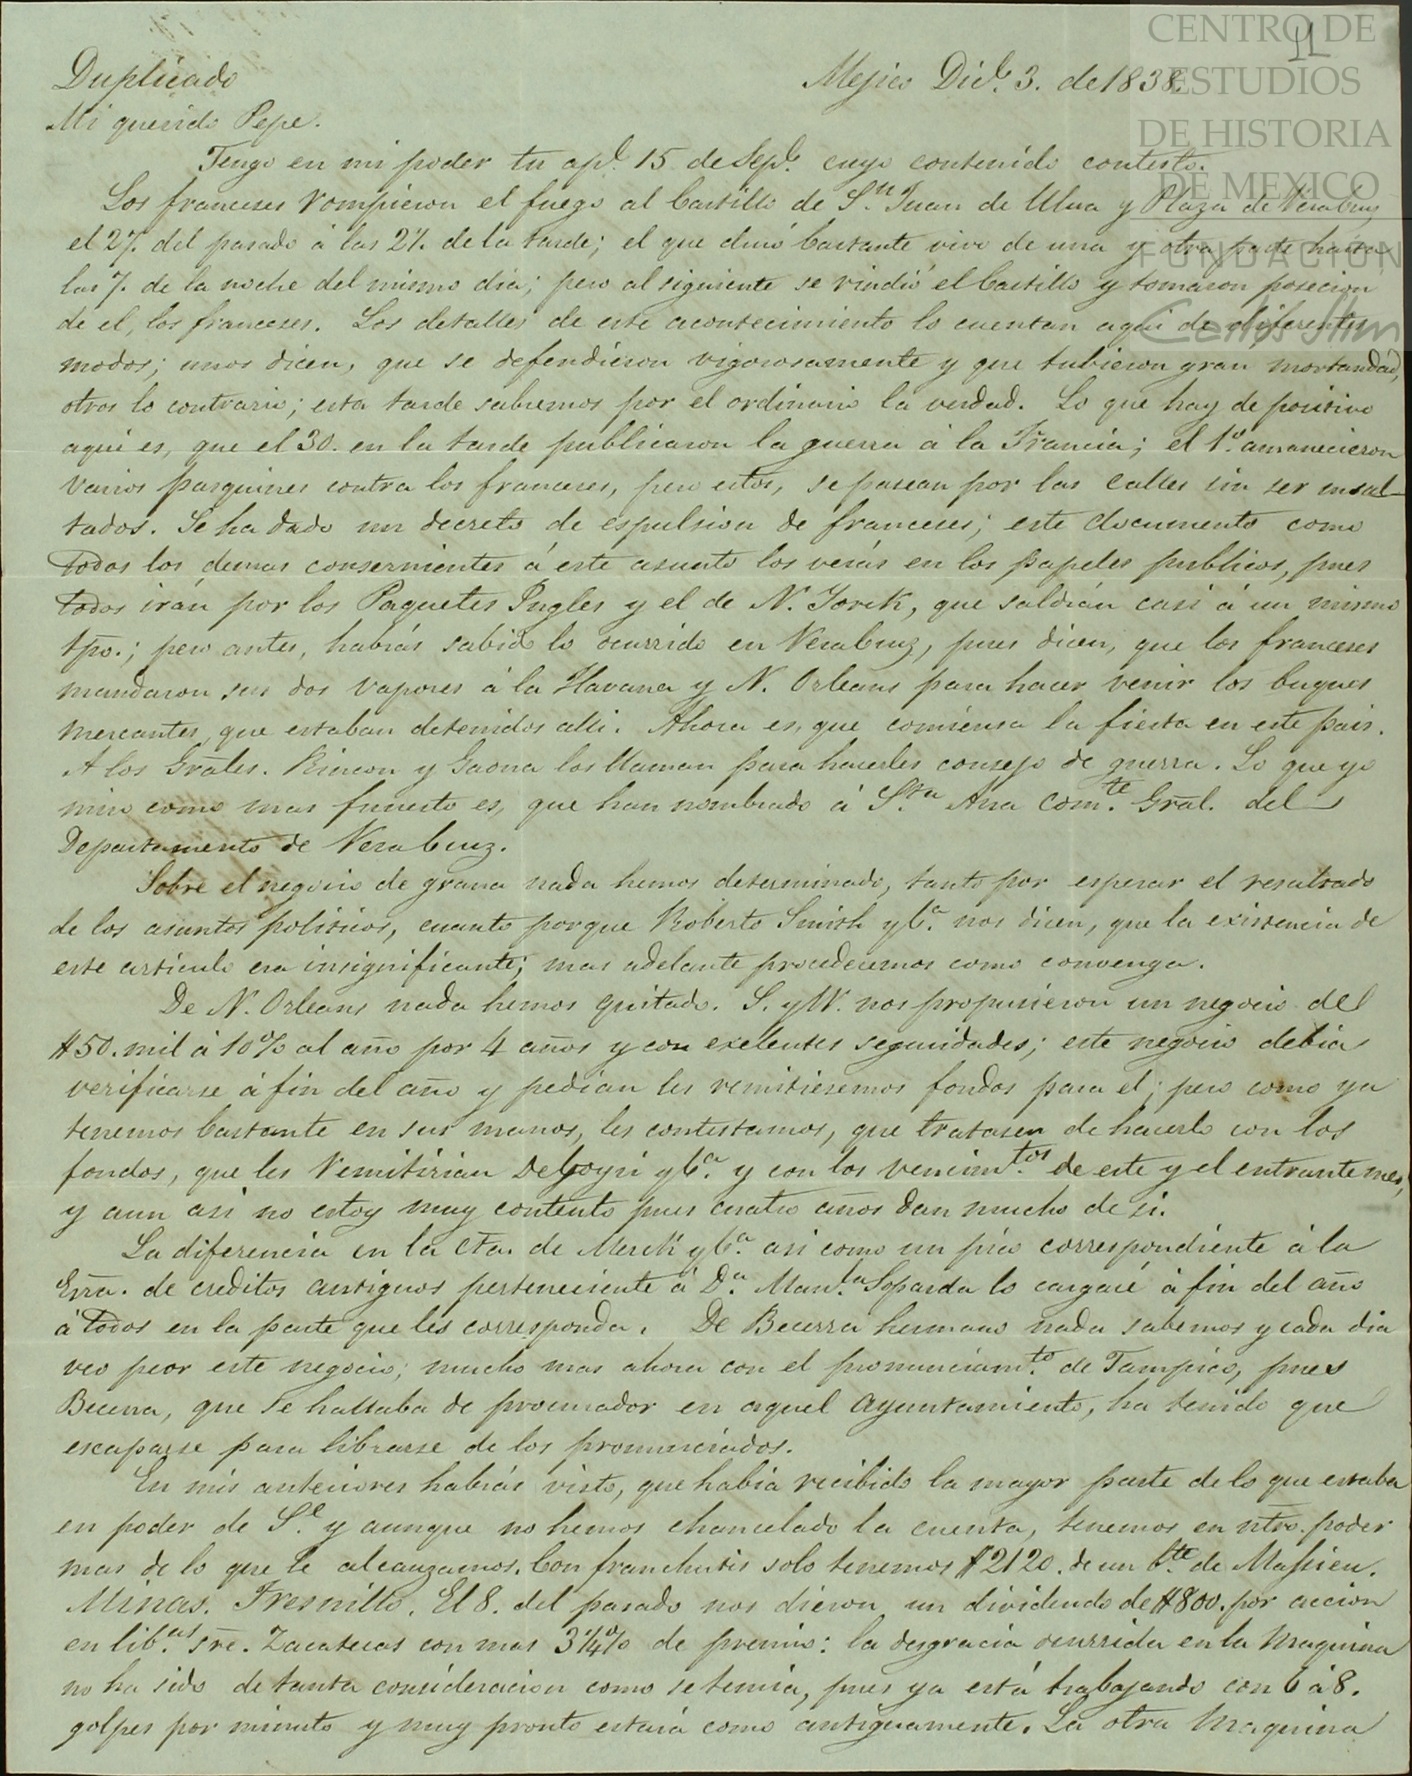 CENTRO DE
ESTUDIOS
DE HISTORIA
DE MEXICO
FUNDACION
Carlos Slim
11
Duplicado
Mejico Dic.e 3. de 1838.
Mi querido Pepe.
Tengo en mi poder tu ap.l 15 de Sep.e cuyo contenido contesto.
Los franceses rompieron el fuego al Castillo de S.n Juan de Ulua y Plaza de Veracruz
el 27. del pasado á las 2½ de la tarde; el que duró bastante vivo de una y otra parte hasta
las 7. de la noche del mismo dia; pero al siguiente se rindió el Castillo y tomaron posecion
de el, los franceses. Los detalles de este acontecimiento lo cuentan aqui de diferentes
modos; unos dicen, que se defendieron vigorosamente y que tubieron gran mortandad,
otros lo contrario; esta tarde sabremos por el ordinario la verdad. Lo que hay de positivo
aqui es, que el 30. en la tarde publicaron la guerra á la Francia; el 1.o amanecieron
varios pasquines contra los franceses, pero estos, se pasean por las calles sin ser insul-
tados. Se ha dado un decreto de espulsion de franceses; este documento como
todos los demas consernientes á este asunto los verás en los papeles publicos, pues
todos irán por los Paquetes Ingles y el de N. Yorck, que saldrán casi á un mismo
tpo.; pero antes, habrás sabido lo ocurrido en Veracruz, pues dicen, que los franceses
mandaron sus dos vapores á la Havana y N. Orleans para hacer venir los buques
mercantes, que estaban detenidos alli. Ahora es, que comiensa la fiesta en este pais.
A los Grales. Rincon y Gaona los llaman para hacerles consejo de guerra. Lo que yo
miro como mas funesto es, que han nombrado á S.ta Ana Com.te Gral. del
Departamento de Veracruz.
Sobre el negocio de grana nada hemos determinado, tanto por esperar el resultado
de los asuntos politicos, cuanto porque Roberto Smith y C.a nos dicen, que la existencia de
este articulo era insignificante; mas adelante procederemos como convenga.
De N. Orleans nada hemos quitado. S. y W. nos propusieron un negocio del
$50. mil á 10% al año por 4 años y con exelentes seguridades; este negocio debia
verificarse á fin del año y pedian les remitiesemos fondos para el; pero como ya
tenemos bastante en sus manos, les contestamos, que tratasen de hacerlo con los
fondos, que les remitirian DeGoyri y C.a y con los vencim.tos de este y el entrante mes,
y aun asi no estoy muy contento pues cuatro años dan mucho de si.
La diferencia en la cta. de Merck y C.a asi como un pico correspondiente á la
Erra. de creditos antiguos perteneciente á D.a Man.la Soparda lo cargaré á fin del año
á todos en la parte que les corresponda. De Becerra hermano nada sabemos y cada dia
veo peor este negocio; mucho mas ahora con el pronunciam.to de Tampico, pues
Becerra, que se hallaba de procurador en aquel Ayuntamiento, ha tenido que
escaparse para librarse de los pronunciados.
En mis anteriores habrás visto, que habia recibido la mayor parte de lo que estaba
en poder de S.e y aunque no hemos chancelado la cuenta, tenemos en ntro. poder
mas de lo que le alcanzamos. Con franchutis solo tenemos $2120. de un C.te de Massieu.
Minas. Fresnillo. El 8. del pasado nos dieron un dividendo de $800. por accion
en lib.as sre. Zacatecas con mas 3¼% de premio: la desgracia ocurrida en la Maquina
no ha sido de tanta consideracion como se temia, pues ya está trabajando con 6 á 8.
golpes por minuto y muy pronto estará como antiguamente. La otra Maquina